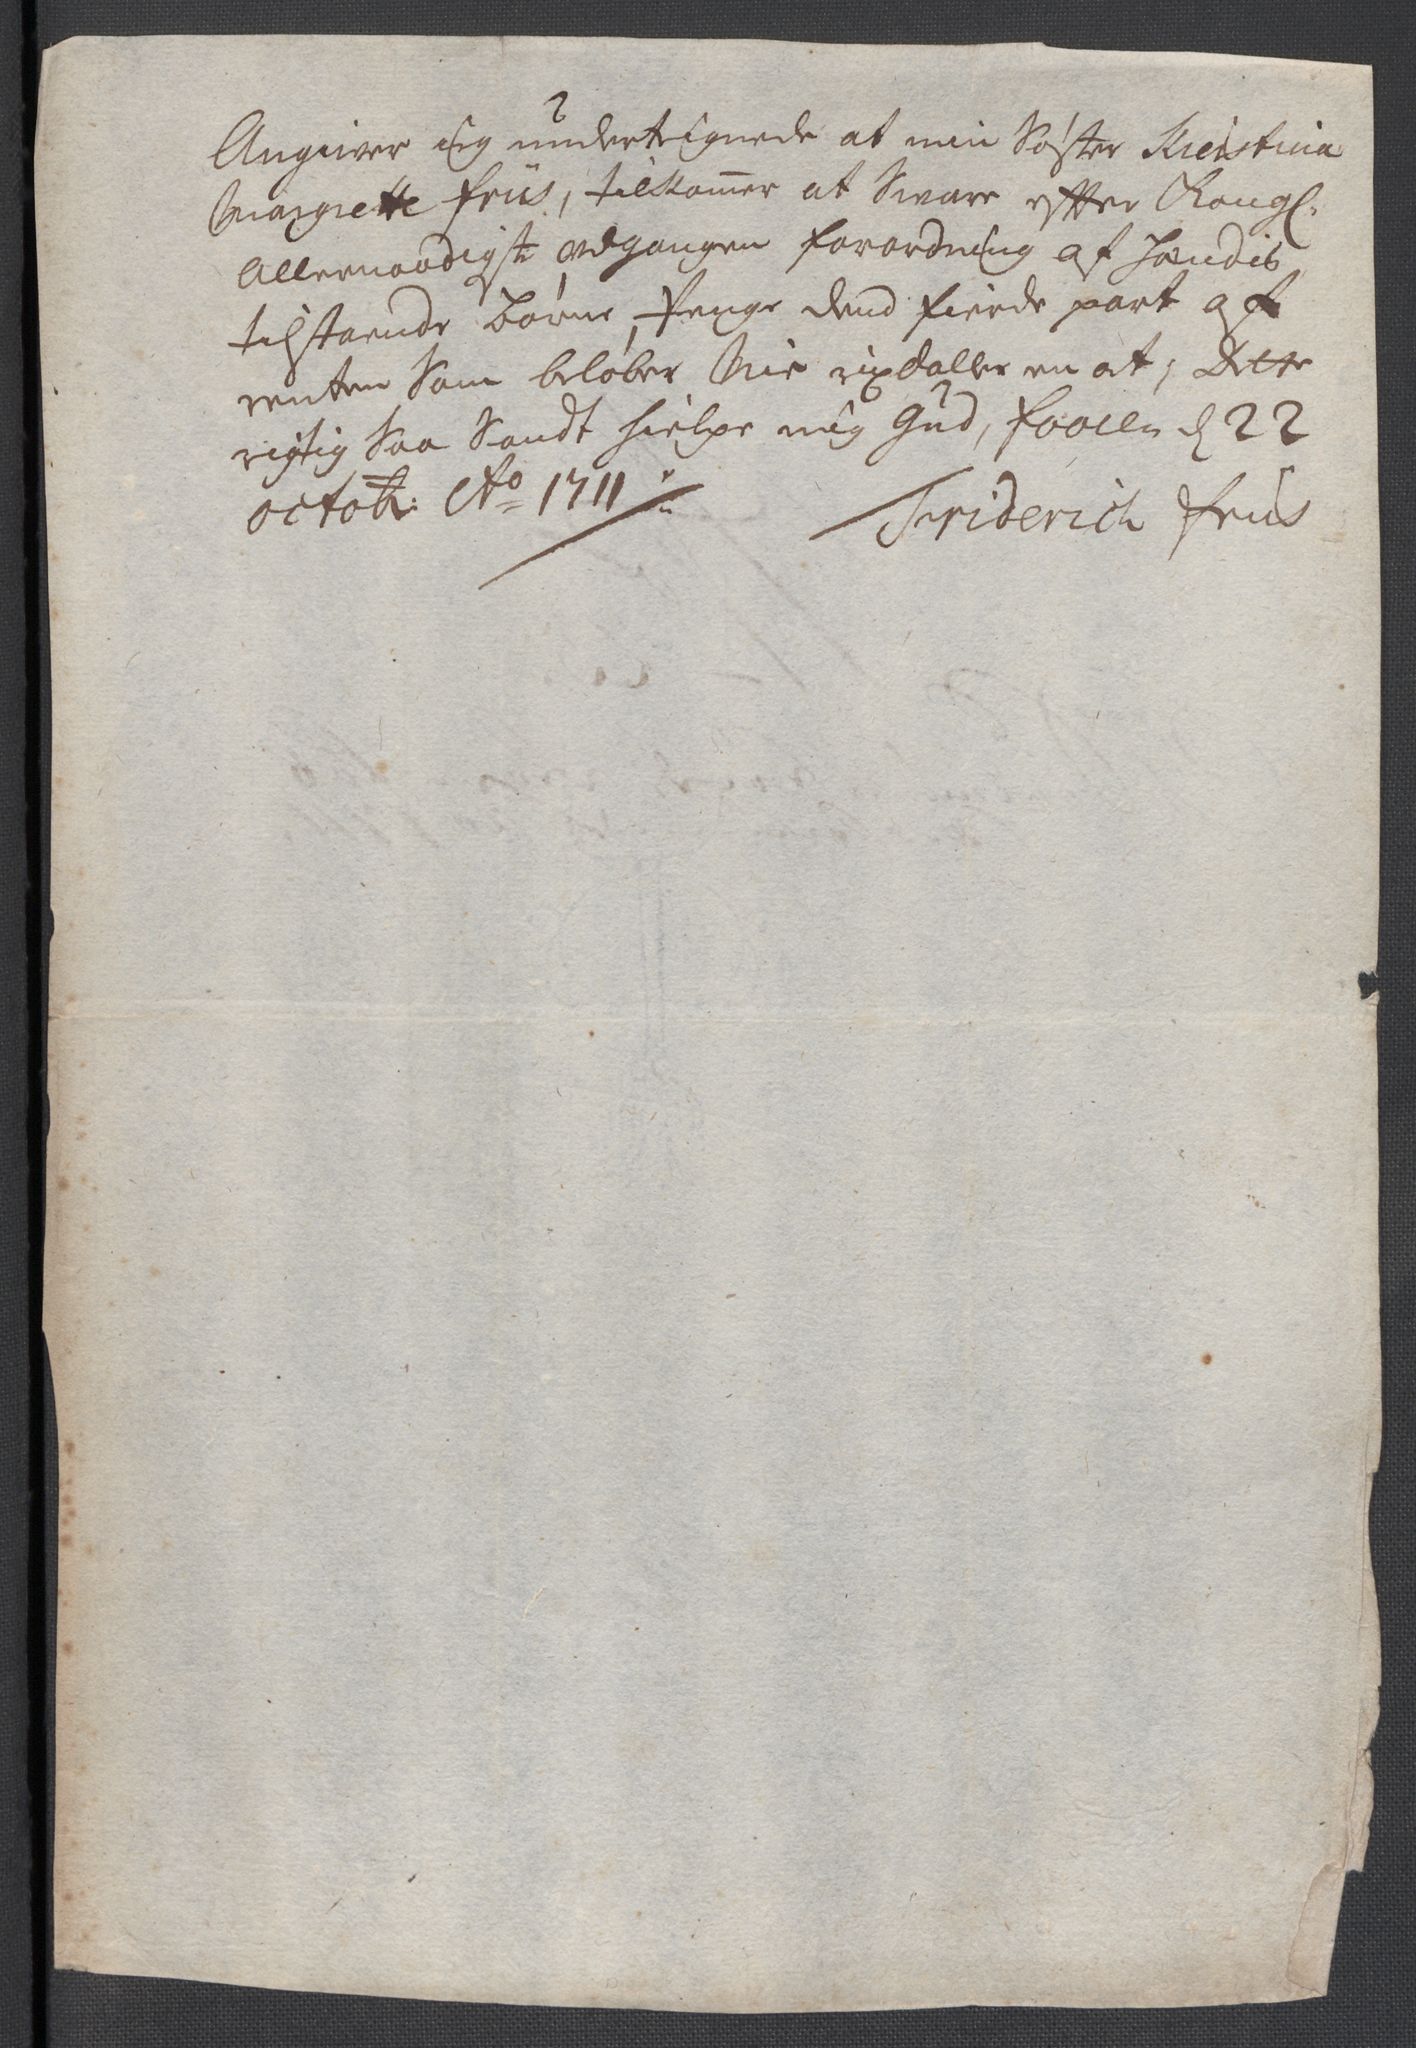 Angiver ieg undertegnede at min Søster Kiestina
Margrette friis, tilkommer at Svare efter Kongl.
Allernaadigste udgangen forordning af hendis
tilstaende børne penge dend fierde part af
renten Som beløber Nie rixdaller en ort, Dette
rigtig Saa Sandt hielpe mig Gud, d 22
octob: Ao 1711
Friderich friis